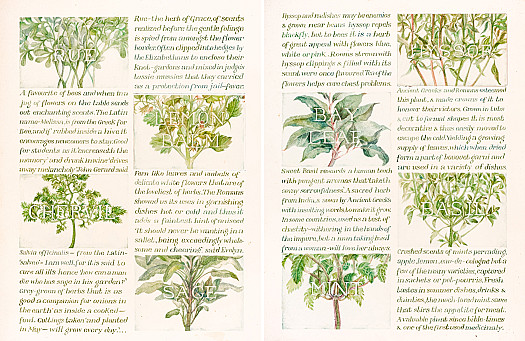 RUE
Rue – the herb of Grace, of scents
realized before the gentle foliage
is spied from amongst the flower
border. Often clipped into hedges by
the Elizabethans to enclose their
knot-gardens and mixed in judge's
tussie mussies that they carried
as a protection from jail-fever.
A favourite of bees and when in a
jug of flowers on the table sends
out enchanting scents. The Latin
name Melissa, is from the Greek for
bee, and if rubbed inside a hive it
encourages newcomers to stay. Good
for students as it increaseth the
memory and drunk in wine drives
away melancholy John Gerard said
BALM
CHERVIL
Fern like leaves and umbels of
delicate white flowers that are
the loveliest of herbs. The Romans
showed us its uses in garnishing
dishes hot or cold and thus it
adds a faint hint of aniseed
'it should never be wanting in a
sallet, being exceedingly whole-
some and chearing' said Evelyn.
Salvia officinalis – from the Latin
Salveo – I am well, for it is said to
cure all ills: hence how can a man
die who has sage in his garden?
easy-grown of herbs that is as
good a companion for onions in
the earth as inside a cooked
fowl. Cuttings taken and planted
in May – will grow every day'...
SAGE
Hyssop and radishes may be enemies
as grown near beans hyssop repels
blackfly, but to bees it is a herb
of great appeal with flowers blue,
white or pink. Rooms strewn with
hyssop clippings & filled with its
scent, were once favoured. Tea of the
flowers helps ease chest problems.
HYSSOP
BAY
LEAF
Ancient Greeks and Romans esteemed
this plant, & made crowns of it to
honour their victors. Grown in tubs
& cut to formal shapes it is most
decorative & thus easily moved to
escape the cold. Yielding a growing
supply of leaves, which when dried
form a part of bouquet garni and
are used in a variety of dishes
Sweet Basil rewards a human touch
with pungent aromas that 'taketh
away sorrowfulness'. A sacred herb
from India, & sown by Ancient Greeks
with insulting words to make it grow. In
some countries, used as a test of
chastity – withering in the hands of
the impure, but a man taking it
from a woman – will love her always.
BASIL
MINT
Crushed scents of mints pervading,
apple, lemon, eau-de-cologne but a
few of the many varieties, captured
in sachets or pot-pourris. Fresh
tastes in summer dishes, drinks &
dainties, the mead-lore and mint sauce
that stirs the appetite for meat.
A valuable plant since bible-times
& one of the first used medicinally.